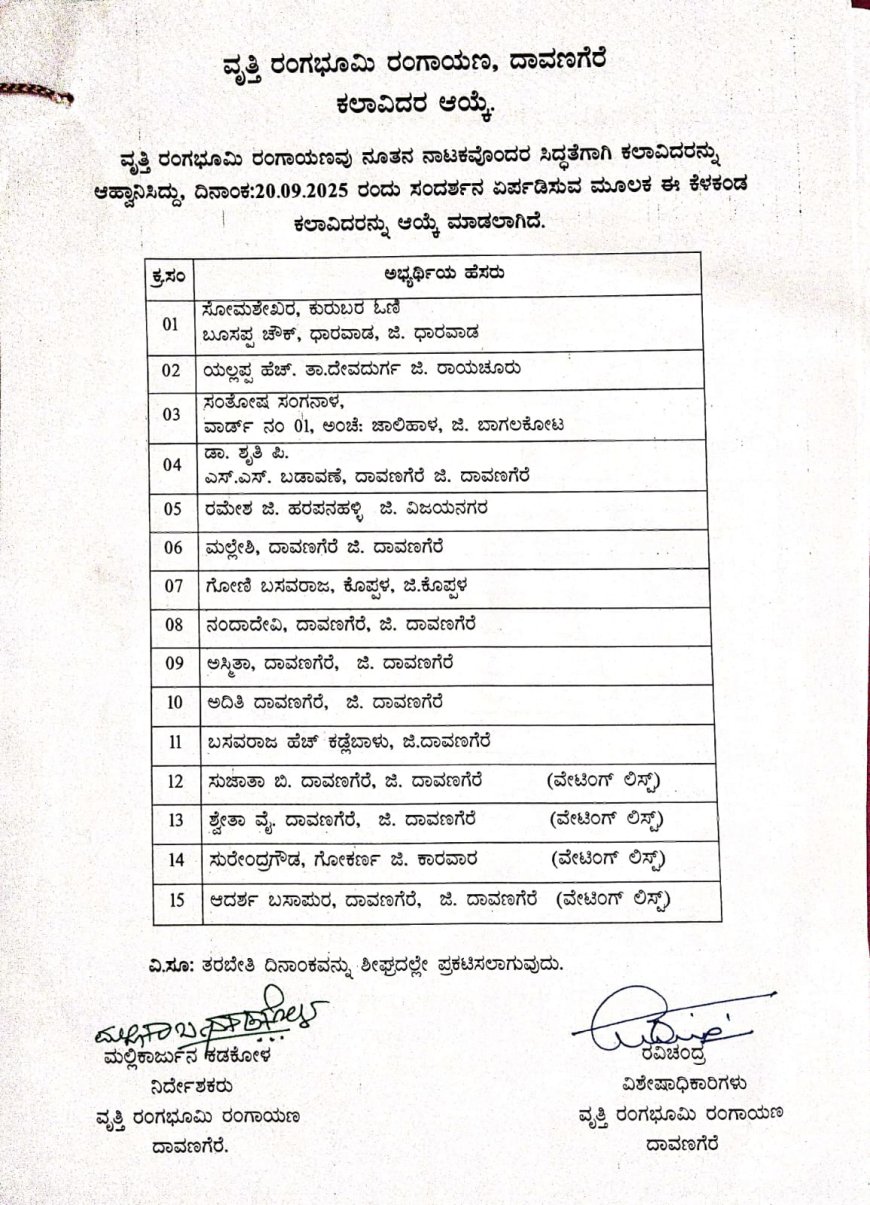 ವೃತ್ತಿ ರಂಗಭೂಮಿ ರಂಗಾಯಣ, ದಾವಣಗೆರೆ
ಕಲಾವಿದರ ಆಯ್ಕೆ.
ವೃತ್ತಿ ರಂಗಭೂಮಿ ರಂಗಾಯಣವು ನೂತನ ನಾಟಕವೊಂದರ ಸಿದ್ಧತೆಗಾಗಿ ಕಲಾವಿದರನ್ನು
ಆಹ್ವಾನಿಸಿದ್ದು, ದಿನಾಂಕ:20.09.2025 ರಂದು ಸಂದರ್ಶನ ಏರ್ಪಡಿಸುವ ಮೂಲಕ ಈ ಕೆಳಕಂಡ
ಕಲಾವಿದರನ್ನು ಆಯ್ಕೆ ಮಾಡಲಾಗಿದೆ.
ಕ್ರ.ಸಂ ಅಭ್ಯರ್ಥಿಯ ಹೆಸರು
01 ಸೋಮಶೇಖರ, ಕುರುಬರ ಓಣಿ
ಬೂಸಪ್ಪ ಚೌಕ್, ಧಾರವಾಡ, ಜಿ. ಧಾರವಾಡ
02 ಯಲ್ಲಪ್ಪ ಹೆಚ್. ತಾ.ದೇವದುರ್ಗ ಜಿ. ರಾಯಚೂರು
03 ಸಂತೋಷ ಸಂಗನಾಳ,
ವಾರ್ಡ್ ನಂ 01, ಅಂಚೆ: ಜಾಲಿಹಾಳ, ಜಿ. ಬಾಗಲಕೋಟ
04 ಡಾ. ಶೃತಿ ಪಿ.
ಎಸ್.ಎಸ್. ಬಡಾವಣೆ, ದಾವಣಗೆರೆ ಜಿ. ದಾವಣಗೆರೆ
05 ರಮೇಶ ಜಿ. ಹರಪನಹಳ್ಳಿ ಜಿ. ವಿಜಯನಗರ
06 ಮಲ್ಲೇಶಿ, ದಾವಣಗೆರೆ ಜಿ. ದಾವಣಗೆರೆ
07 ಗೋಣಿ ಬಸವರಾಜ, ಕೊಪ್ಪಳ, ಜಿ.ಕೊಪ್ಪಳ
08 ನಂದಾದೇವಿ, ದಾವಣಗೆರೆ, ಜಿ. ದಾವಣಗೆರೆ
09 ಅಸ್ಮಿತಾ, ದಾವಣಗೆರೆ, ಜಿ. ದಾವಣಗೆರೆ
10 ಅದಿತಿ ದಾವಣಗೆರೆ, ಜಿ. ದಾವಣಗೆರೆ
11 ಬಸವರಾಜ ಹೆಚ್ ಕಡ್ಲೆಬಾಳು, ಜಿ.ದಾವಣಗೆರೆ
12 ಸುಜಾತಾ ಬಿ. ದಾವಣಗೆರೆ, ಜಿ. ದಾವಣಗೆರೆ (ವೇಟಿಂಗ್ ಲಿಸ್ಟ್)
13 ಶ್ವೇತಾ ವೈ. ದಾವಣಗೆರೆ, ಜಿ. ದಾವಣಗೆರೆ (ವೇಟಿಂಗ್ ಲಿಸ್ಟ್)
14 ಸುರೇಂದ್ರಗೌಡ, ಗೋಕರ್ಣ ಜಿ. ಕಾರವಾರ (ವೇಟಿಂಗ್ ಲಿಸ್ಟ್)
15 ಆದರ್ಶ ಬಸಾಪುರ, ದಾವಣಗೆರೆ, ಜಿ. ದಾವಣಗೆರೆ (ವೇಟಿಂಗ್ ಲಿಸ್ಟ್)
ವಿ.ಸೂ: ತರಬೇತಿ ದಿನಾಂಕವನ್ನು ಶೀಘ್ರದಲ್ಲೇ ಪ್ರಕಟಿಸಲಾಗುವುದು.
ಮಲ್ಲಿಕಾರ್ಜುನ ಕಡಕೋಳ
ನಿರ್ದೇಶಕರು
ವೃತ್ತಿ ರಂಗಭೂಮಿ ರಂಗಾಯಣ
ದಾವಣಗೆರೆ.
ರವಿಚಂದ್ರ
ವಿಶೇಷಾಧಿಕಾರಿಗಳು
ವೃತ್ತಿ ರಂಗಭೂಮಿ ರಂಗಾಯಣ
ದಾವಣಗೆರೆ